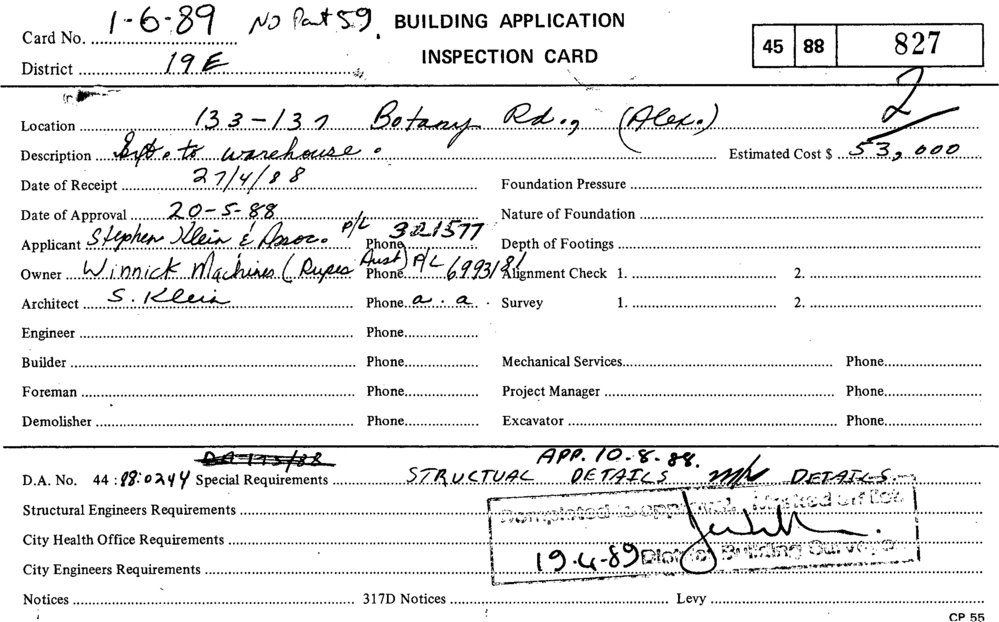 Card No. 1-6-89 NO Part 59. BUILDING APPLICATION
District 19E INSPECTION CARD 45 88 827
2
Location 133-137 Botany Rd., (Alex.)
Description to warehouse. Estimated Cost $ 53,000
Date of Receipt 27/4/88 Foundation Pressure
Date of Approval 20-5-88 Nature of Foundation
Applicant Stephen Klein & Assoc. P/L Phone 321577 Depth of Footings
Owner Winnick Machines (Rupes Aust) P/L Phone 6993181 Alignment Check 1. 2.
Architect S. Klein Phone a.a. Survey 1. 2.
Engineer Phone
Builder Phone Mechanical Services Phone
Foreman Phone Project Manager Phone
Demolisher Phone Excavator Phone
DA 175/88 APP. 10-8-88.
D.A. No. 44 : 88:0244 Special Requirements STRUCTUAL DETAILS m/v DETAILS
Structural Engineers Requirements Completed as approved. Marked off Box
City Health Office Requirements
City Engineers Requirements 19-4-89 District Building Surveyor
Notices 317D Notices Levy
CP 55